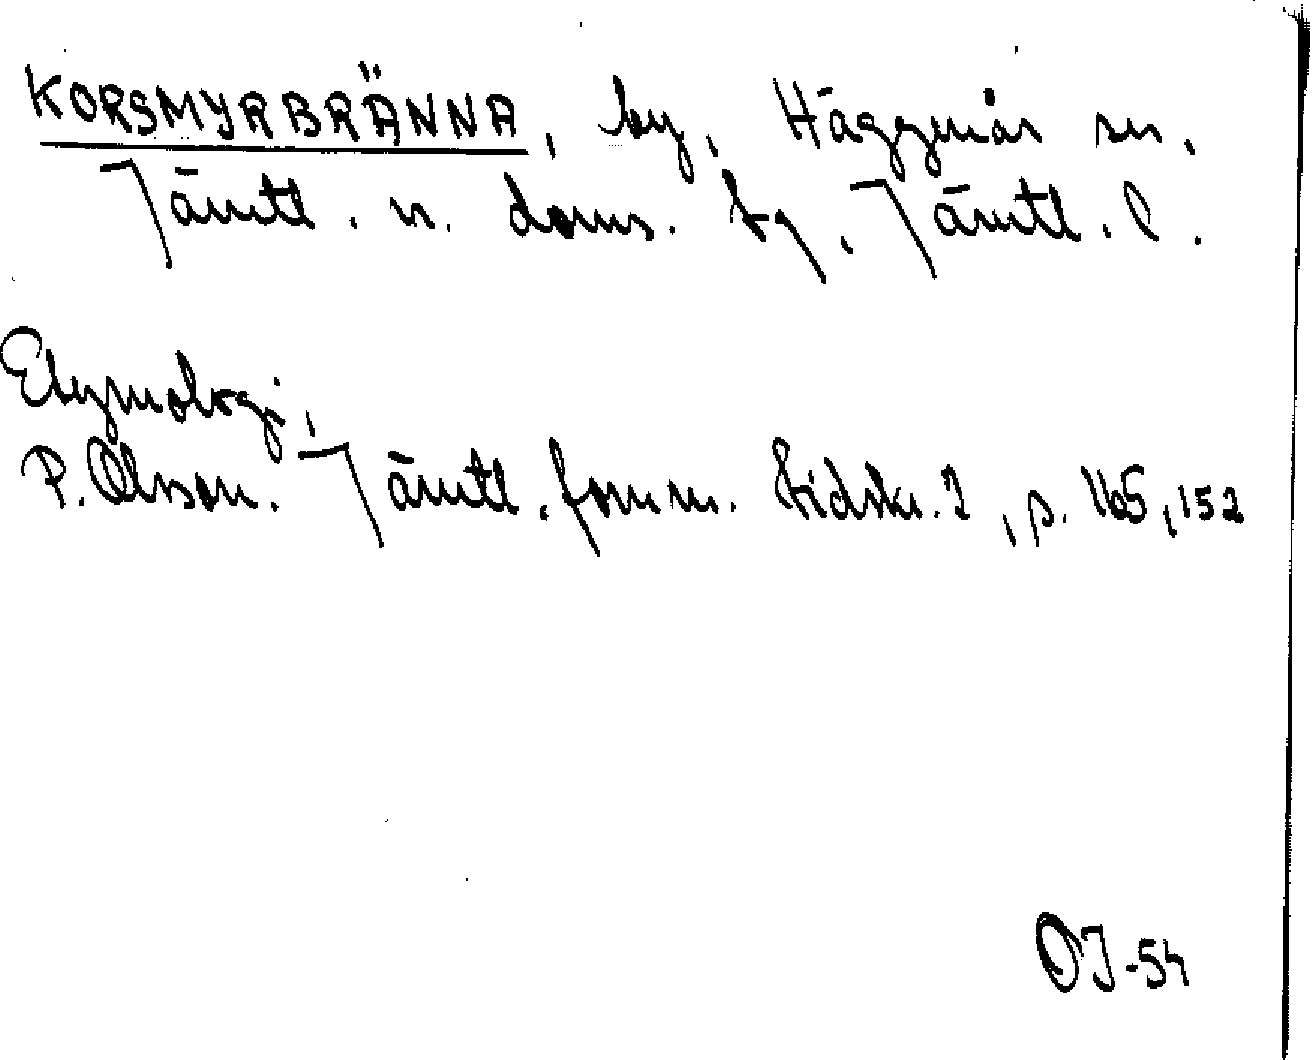 KORSMYRBRÄNNA, by, Häggenås sn,
Jämtl. n. doms. tg, Jämtl. l.
Etymologi,
P. Olsson. Jämtl. fornm. tidskr. 2, p. 165, 152
OJ-54